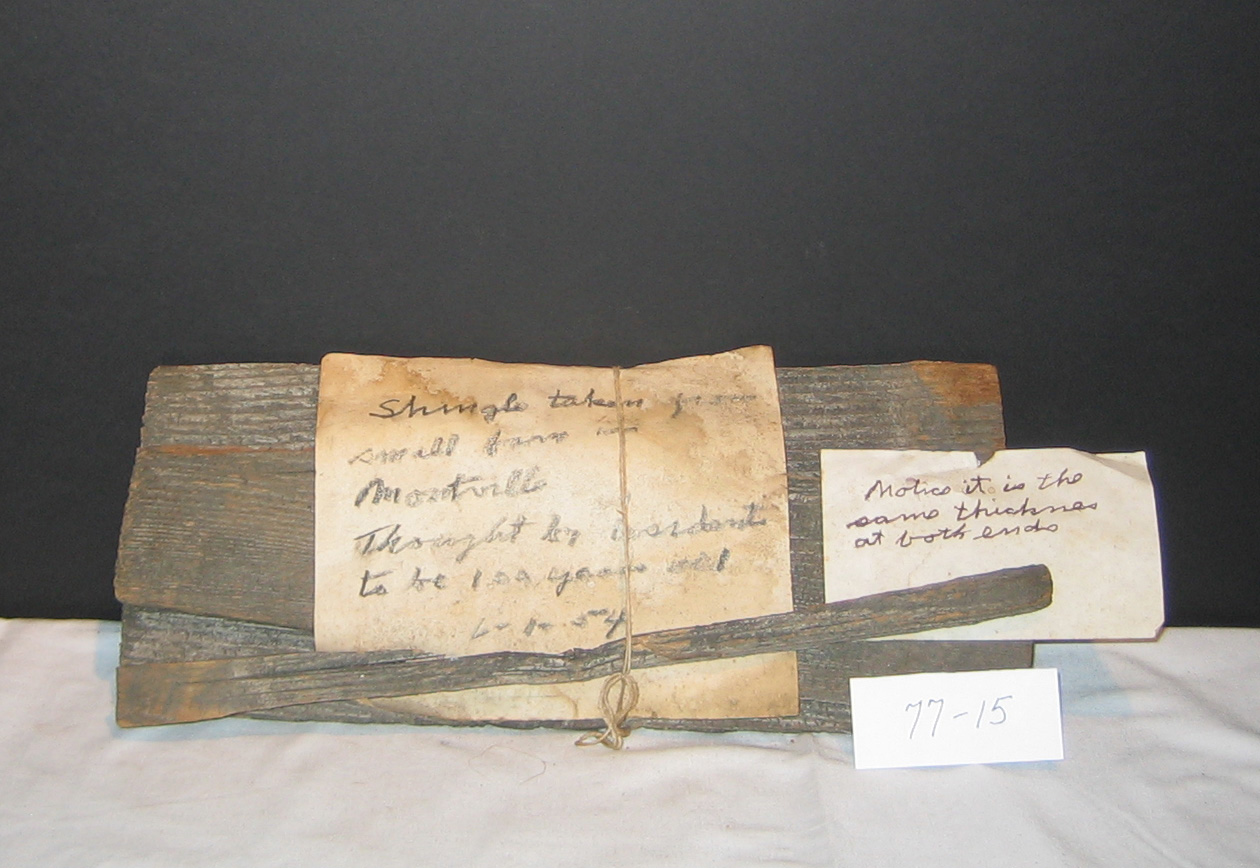 Shingle taken from
small barn in
Montville
Thought by
to be 100 years old
6-1-54
Notice it is the
same thicknes
at both ends
77-15